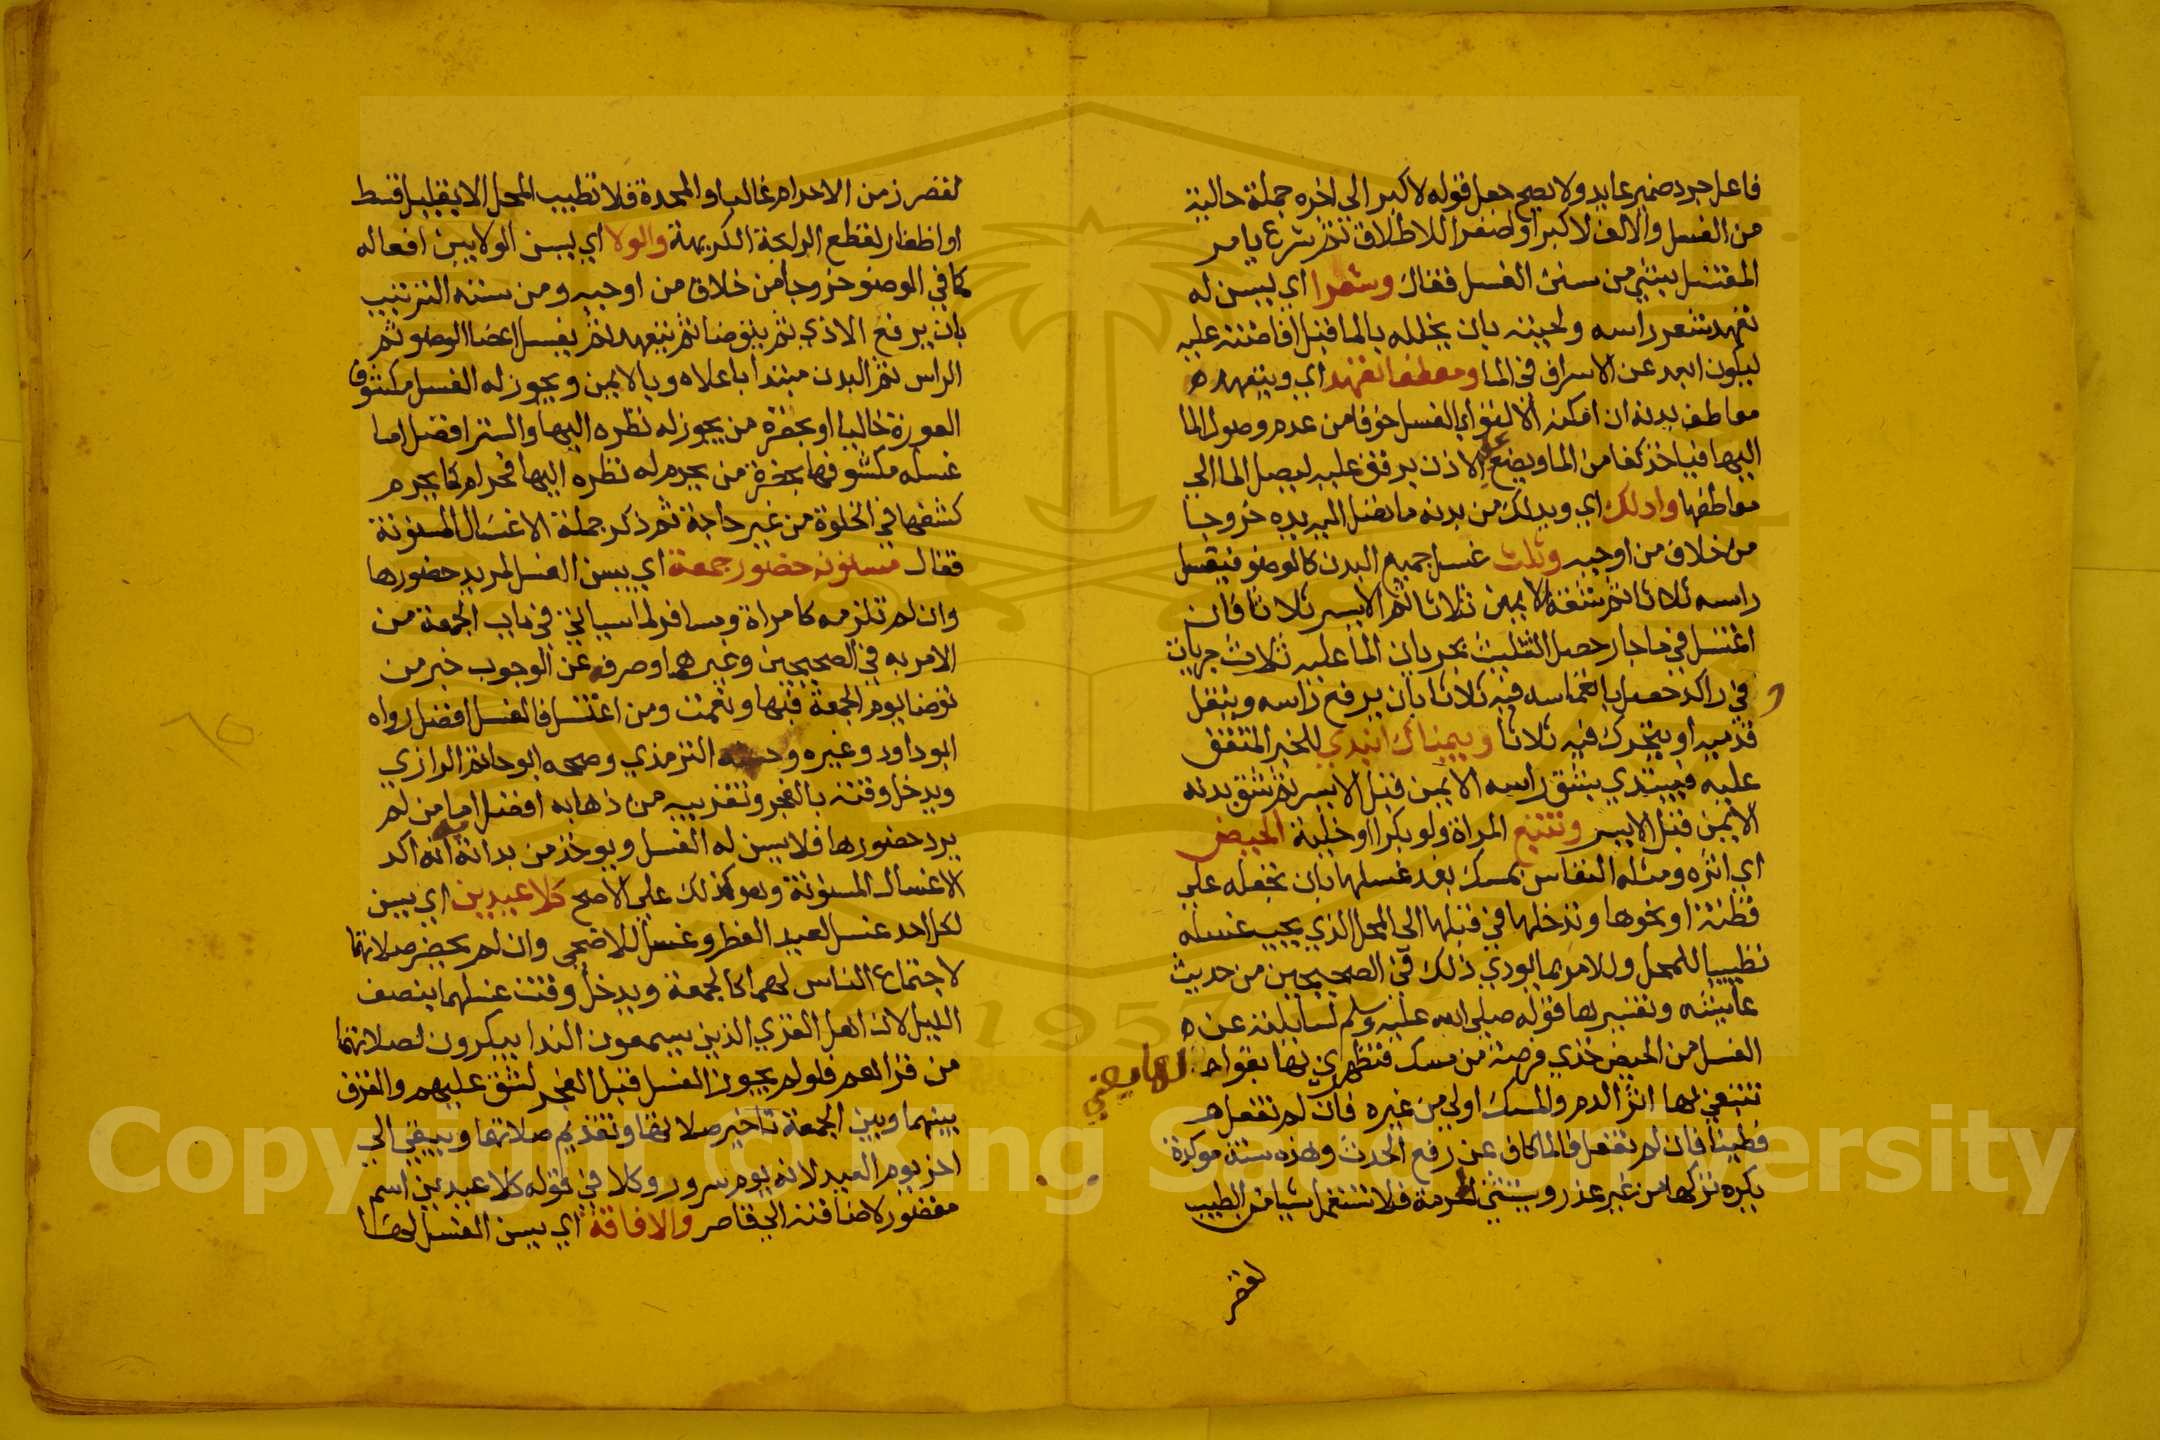 فاعل جرد ضمير عايد ولا يصح جعل قوله لاكبر الى اخره جملة حالية
من الغسل والالف لاكبر او اصغرا للاطلاق ثم شرع يامر
المغتسل بشي من سنن الغسل فقال وشعرا اي يسن له
تعهد شعر راسه ولحيته بان يخلله بالما قبل افاضته عليه
ليكون ابعد عن الاسراف في الما ومعطفا تعهد اي ويتعهد
معاطف بدنه ان امكنه الالتوا في الغسل خوفا من عدم وصول الما
اليها فياخذ كفا من الما ويضع الاذن برفق عليه ليصل الما الي
معاطفها وادلك اي ويدلك من بدنه ما تصل اليه يده خروجا
من خلاف من اوجبه وثلث غسل جميع البدن كالوضو فيغسل
راسه ثلاثا ثم شقه الايمن ثلاثا ثم الايسر ثلاثا فان
اغتسل في ما جار حصل التثليث بجريان الما عليه ثلاث جريات
و في راكد حصل بانغماسه فيه ثلاثا بان يرفع راسه وينقل
قدميه او يتحرك فيه ثلاثا وبيمناك ابتدي للخبر المتفق
عليه فيبتدي بشق راسه الايمن قبل الايسر ثم شق بدنه
الايمن قبل الايسر وتتبع المراة ولو بكرا او خلية الحيض
اي اثره ومثله النفاس بمسك بعد غسلها بان تجعله علي
قطنة او نحوها وتدخلها في قبلها الى المحل الذي يجب غسله
تطييبا للمحل وللامر بما يودي ذلك في الصحيحين من حديث
عايشه وتفسيرها قوله صلى الله عليه وسلم لسايلته عن
الغسل من الحيض خذي فرصة من مسك فتطهري بها بقولها لها يعني
تتبعي بها اثر الدم والمسك اولي من غيره فان لم تفعل
فطيبا فان لم تفعل فالما كاف عن رفع الحدث وهذه سنة موكدة
يكره تركها من غير عذر ويستثني المحرمة فلا تستعمل شيا من الطيب
لقصر
لقصر زمن الاحرام غالبا والمحدة فلا تطيب المحل الا بقليل قسط
او اظفار لقطع الرايحة الكريهة والولا اي يسن الولا بين افعاله
كما في الوضو خروجا من خلاف من اوجبه ومن سننه الترتيب
بان يرفع الاذي ثم يتوضا ثم يتعهد ثم يغسل اعضا الوضو ثم
الراس ثم البدن مبتدا باعلاه وبالايمن ويجوز له الغسل مكشوف
العورة خاليا او بحضرة من يجوز له نظره اليها والستر افضل اما
غسله مكشوفها بحضرة من يحرم له نظره اليها فحرام كما يحرم
كشفها في الخلوة من غير حاجة ثم ذكر جملة الاغسال المسنونة
فقال مسنونه حضور جمعة اي يسن الغسل لمريد حضورها
وان لم تلزمه كامراة ومسافر لما سياتي في باب الجمعة من
الامر به في الصحيحين وغيرهما وصرفه عن الوجوب خبر من
توضا يوم الجمعة فبها ونعمت ومن اغتسل فالغسل افضل رواه
ابو داود وغيره وحسنه الترمذي وصححه ابو حاتم الرازي
ويدخل وقته بالفجر وتقريبه من ذهابه افضل اما من لم
يرد حضورها فلا يسن له الغسل ويوخذ من بداته به انه اكد
الاغسال المسنونة وهو كذلك على الاصح كلا عيدين اي يسن
لكل احد غسل لعيد الفطر وغسل للاضحى وان لم يحضر صلاتهما
لاجتماع الناس لهما كالجمعة ويدخل وقت غسلهما بنصف
الليل لان اهل القري الذين يسمعون الندا يبكرون لصلاتهما
من قراهم فلو لم يجوز الغسل قبل الفجر لشق عليهم والفرق
بينهما وبين الجمعة تاخير صلاتها وتقديم صلاتهما ويبقي الي
اخر يوم العيد لانه يوم سرور وكلا في قوله كلا عيدين اسم
مقصور لاضافته الي قاصر والافاقة اي يسن الغسل لها